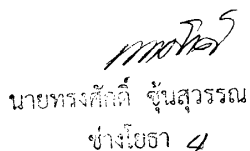 นายทรงศักดิ์ ชุ้นสุวรรณ
ช่างโยธา 4